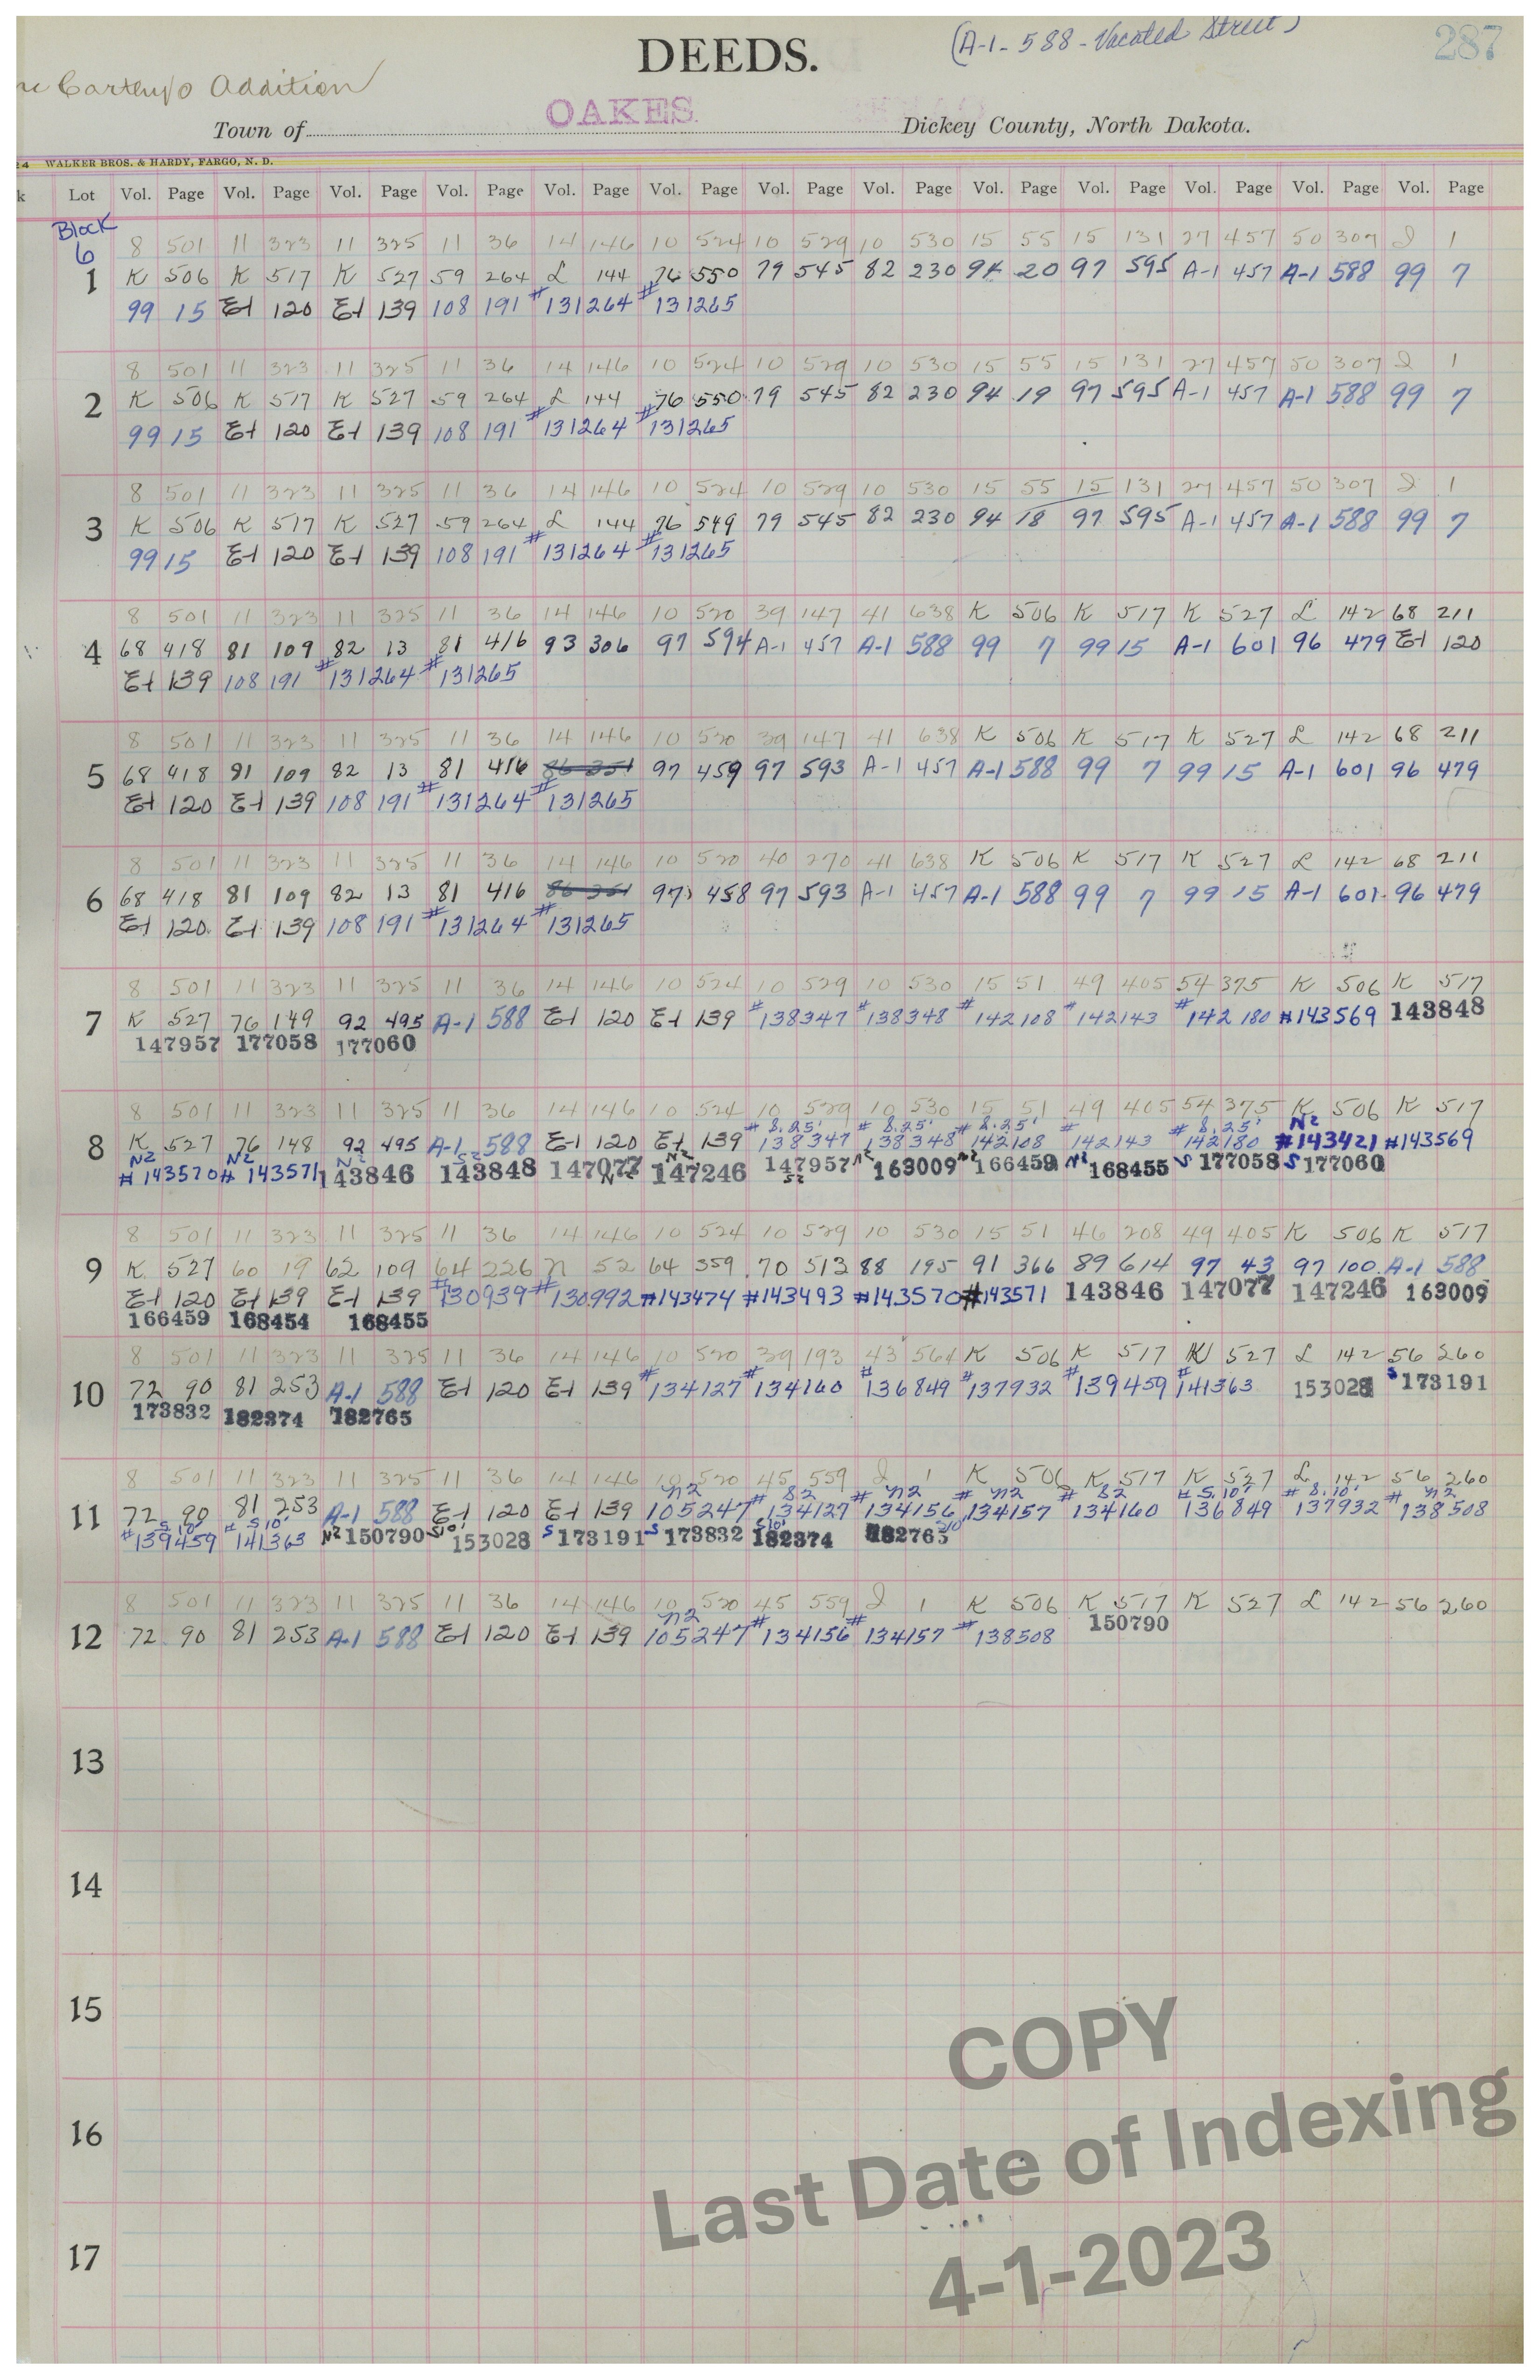 (A-1-588-Vacated Street)
287
DEEDS.
Carthy's Addition
OAKES
Town of Dickey County, North Dakota.
24 WALKER BROS. & HARDY, FARGO, N. D.
k Lot Vol. Page Vol. Page Vol. Page Vol. Page Vol. Page Vol. Page Vol. Page Vol. Page Vol. Page Vol. Page Vol. Page Vol. Page Vol. Page
Block
6
8 501 11 323 11 325 11 36 14 146 10 524 10 529 10 530 15 55 15 131 27 457 50 307 I 1
1 K 506 K 517 K 527 59 264 L 144 76 550 79 545 82 230 94 20 97 595 A-1 457 A-1 588 99 7
99 15 E-1 120 E-1 139 108 191 #131264 #131265
8 501 11 323 11 325 11 36 14 146 10 524 10 529 10 530 15 55 15 131 27 457 50 307 I 1
2 K 506 K 517 K 527 59 264 L 144 76 550 79 545 82 230 94 19 97 595 A-1 457 A-1 588 99 7
99 15 E-1 120 E-1 139 108 191 #131264 #131265
8 501 11 323 11 325 11 36 14 146 10 524 10 529 10 530 15 55 15 131 27 457 50 307 I 1
3 K 506 K 517 K 527 59 264 L 144 76 549 79 545 82 230 94 18 97 595 A-1 457 A-1 588 99 7
99 15 E-1 120 E-1 139 108 191 #131264 #131265
8 501 11 323 11 325 11 36 14 146 10 520 39 147 41 638 K 506 K 517 K 527 L 142 68 211
4 68 418 81 109 82 13 81 416 93 306 97 594 A-1 457 A-1 588 99 7 99 15 A-1 601 96 479 E-1 120
E-1 139 108 191 #131264 #131265
8 501 11 323 11 325 11 36 14 146 10 520 39 147 41 638 K 506 K 517 K 527 L 142 68 211
5 68 418 81 109 82 13 81 416 86 351 97 459 97 593 A-1 457 A-1 588 99 7 99 15 A-1 601 96 479
E-1 120 E-1 139 108 191 #131264 #131265
8 501 11 323 11 325 11 36 14 146 10 520 40 270 41 638 K 506 K 517 K 527 L 142 68 211
6 68 418 81 109 82 13 81 416 86 351 97 458 97 593 A-1 457 A-1 588 99 7 99 15 A-1 601 96 479
E-1 120 E-1 139 108 191 #131264 #131265
8 501 11 323 11 325 11 36 14 146 10 524 10 529 10 530 15 51 49 405 54 375 K 506 K 517
7 K 527 76 149 92 495 A-1 588 E-1 120 E-1 139 #138347 #138348 #142108 #142143 #142180 #143569 143848
147957 177058 177060
8 501 11 323 11 325 11 36 14 146 10 524 10 529 10 530 15 51 49 405 54 375 K 506 K 517
# S.25' # S.25' # S.25' # # S.25' N2
8 K 527 76 148 92 495 A-1 588 E-1 120 E-1 139 138347 138348 142108 142143 142180 #143421 #143569
N2 N2 N2 S2 N2
#143570 #143571 143846 143848 147077 147246 147957 N2 163009 N2 166459 N2 168455 S 177058 S 177060
N2 S2
8 501 11 323 11 325 11 36 14 146 10 524 10 529 10 530 15 51 46 208 49 405 K 506 K 517
9 K 527 60 19 62 109 64 226 N 52 64 359 70 513 88 195 91 366 89 614 97 43 97 100 A-1 588
E-1 120 E-1 139 E-1 139 #130939 #130992 #143474 #143493 #143570 #143571 143846 147077 147246 163009
166459 168454 168455
8 501 11 323 11 325 11 36 14 146 10 520 39 193 43 564 K 506 K 517 K 527 L 142 56 260
10 72 90 81 253 A-1 588 E-1 120 E-1 139 #134127 #134160 #136849 #137932 #139459 #141363 153028 S 173191
173832 182374 182765
8 501 11 323 11 325 11 36 14 146 10 520 45 559 I 1 K 506 K 517 K 527 L 142 56 260
N2 # S2 # N2 # N2 # S2 # S.10' # S.10' # N2
11 72 90 81 253 A-1 588 E-1 120 E-1 139 105247 134127 134156 134157 134160 136849 137932 138508
# S10' # S10'
139459 141363 N2 150790 S10' 153028 S 173191 S 173832 S10' 182374 182765 S10'
8 501 11 323 11 325 11 36 14 146 10 520 45 559 I 1 K 506 K 517 K 527 L 142 56 260
N2
12 72 90 81 253 A-1 588 E-1 120 E-1 139 105247 #134156 #134157 #138508 150790
13
14
15
16
17
COPY
Last Date of Indexing
4-1-2023